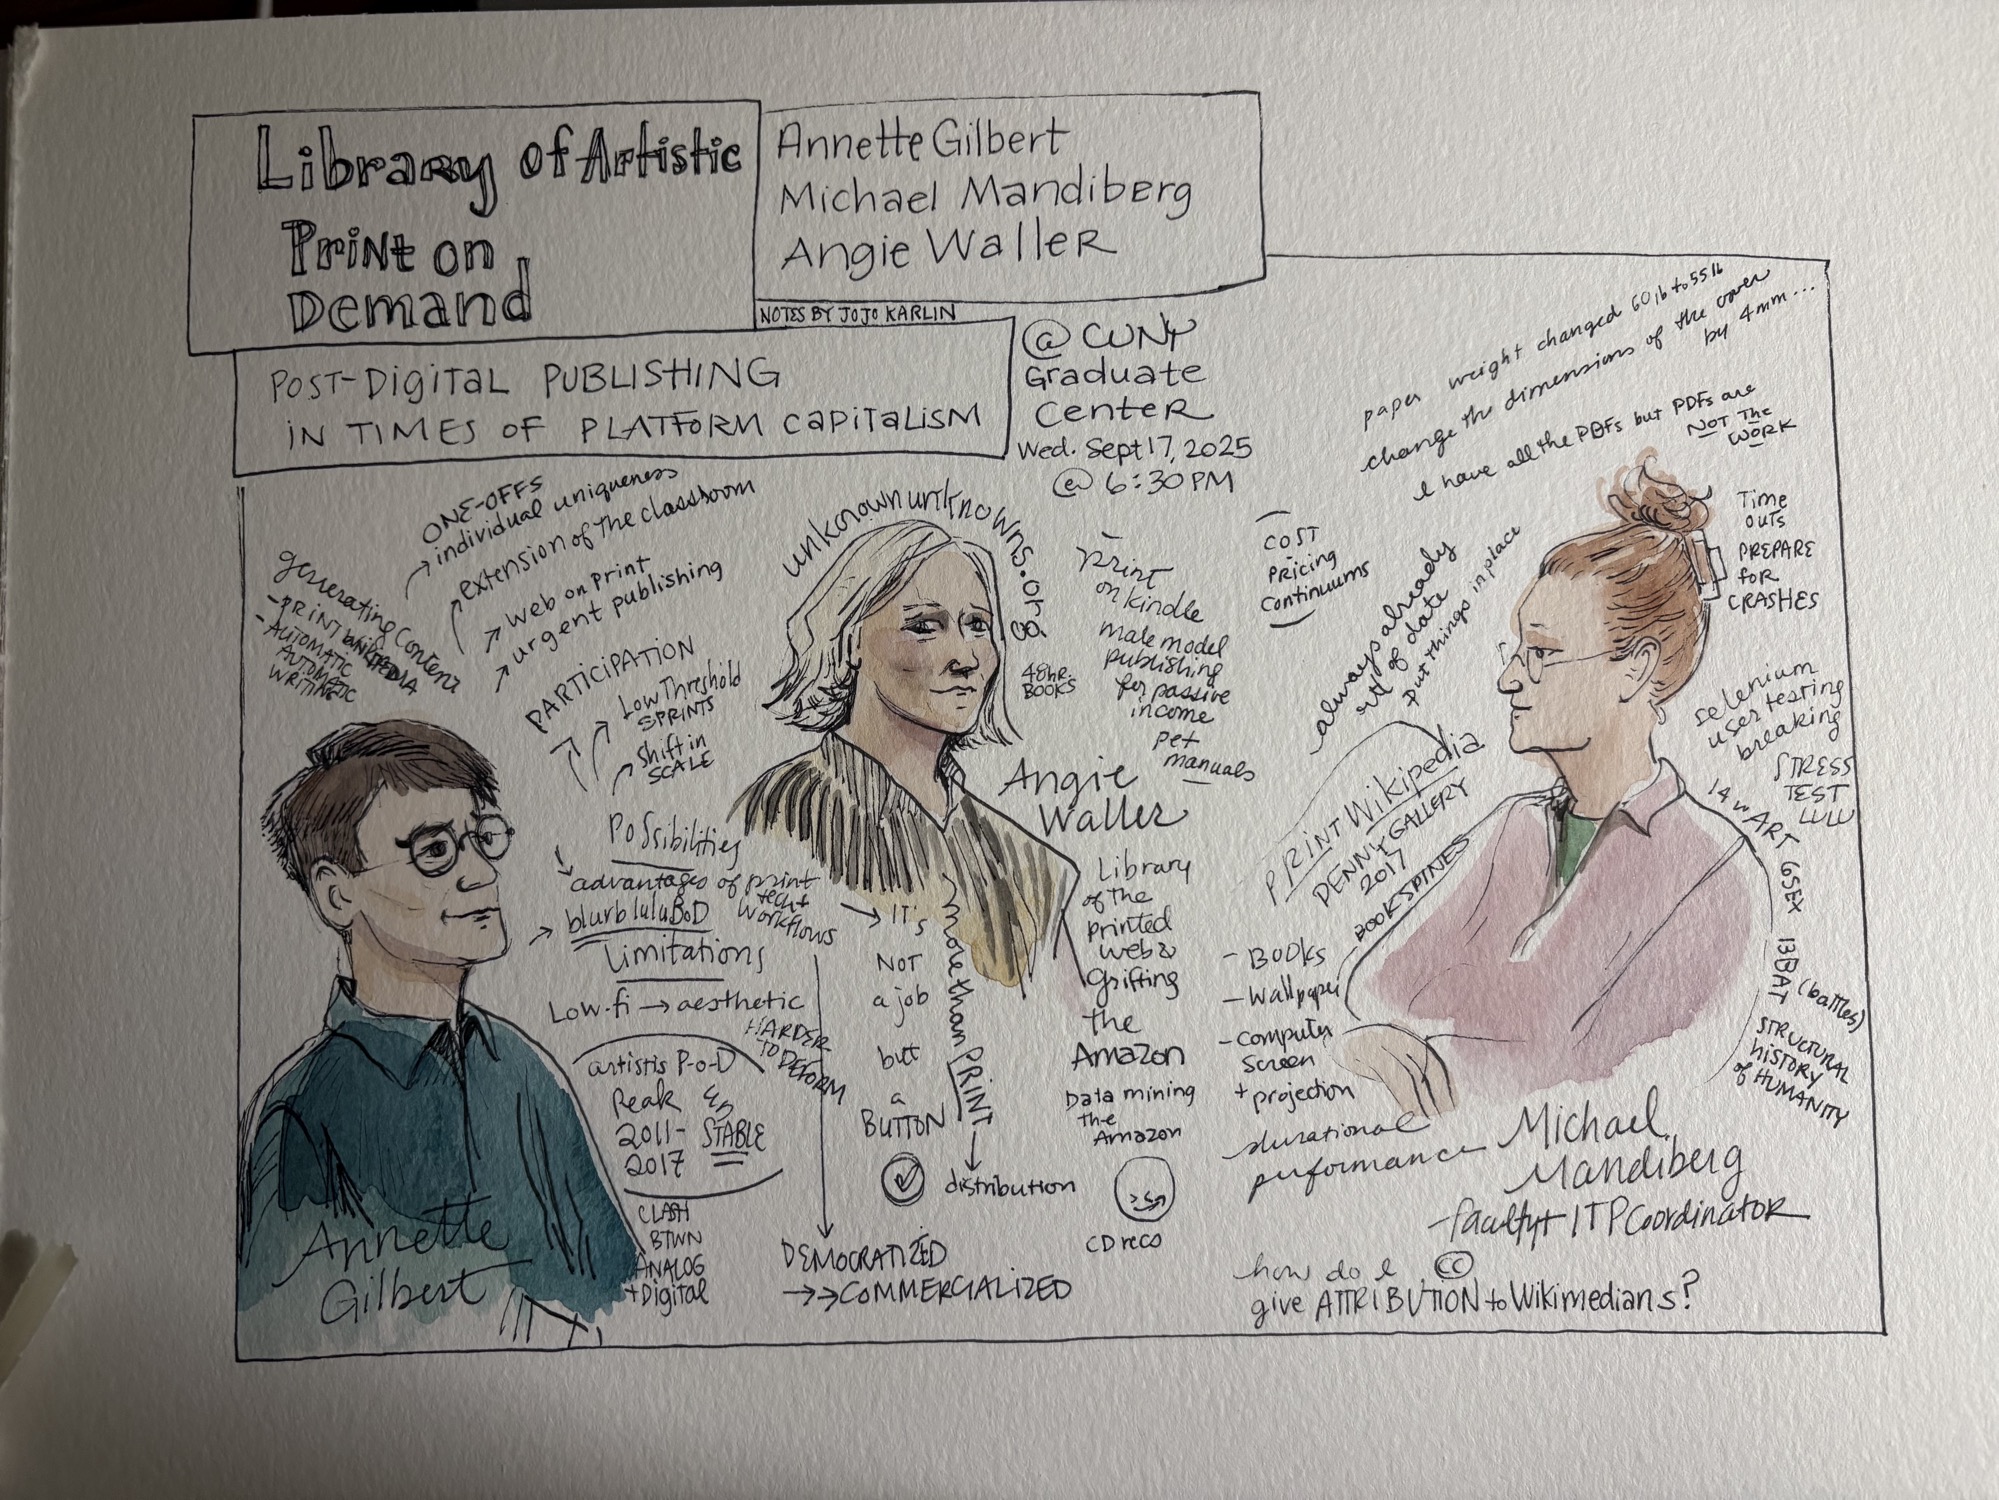 Library of Artistic
Print on
Demand
Annette Gilbert
Michael Mandiberg
Angie Waller
NOTES BY JOJO KARLIN
POST-DIGITAL PUBLISHING
IN TIMES OF PLATFORM CAPITALISM
@ CUNY
Graduate
Center
Wed. Sept 17, 2025
@ 6:30PM
generating content
- PRINT WIKIPEDIA
- AUTOMATIC
AUTOMATIC
WRITING
ONE-OFFS
individual uniqueness
extension of the classroom
web on print
urgent publishing
PARTICIPATION
Low Threshold
SPRINTS
shift in
SCALE
Possibilities
advantages of print
tech +
workflows
blurb lulu BoD
Limitations
Low-fi → aesthetic
HARDER
TO DEFORM
artistis P-o-D
Peak
2011-
2017
STABLE
CLASH
BTWN
ANALOG
+ Digital
Annette
Gilbert
unknownunknowns.org
48hr.
BOOKS
Print
on kindle
male model
publishing
for passive
income
pet
manuals
Angie
Waller
→ IT'S
NOT
a job
but
a
BUTTON
more than PRINT
distribution
DEMOCRATIZED
→→COMMERCIALIZED
Library
of the
printed
web &
Grifting
the
Amazon
Data mining
the
Amazon
CD reco
COST
Pricing
Continuums
paper weight changed 60lb to 55lb
change the dimensions of the cover
by 4mm...
I have all the PDFs but PDFs are
NOT The
WORK
always already
out of date
+ put things in place
Time
outs
PREPARE
for
CRASHES
selenium
user testing
breaking
STRESS
TEST
LULU
PRINT Wikipedia
DENNY GALLERY
2017
BOOK SPINES
- BOOKS
- Wallpaper
- computer
screen
+ projection
durational
performance
14w ART 6SEX 13BAT (battles)
STRUCTURAL
HISTORY
of HUMANITY
Michael
Mandiberg
- faculty + ITP Coordinator
how do I cc
give ATTRIBUTION to Wikimedians?